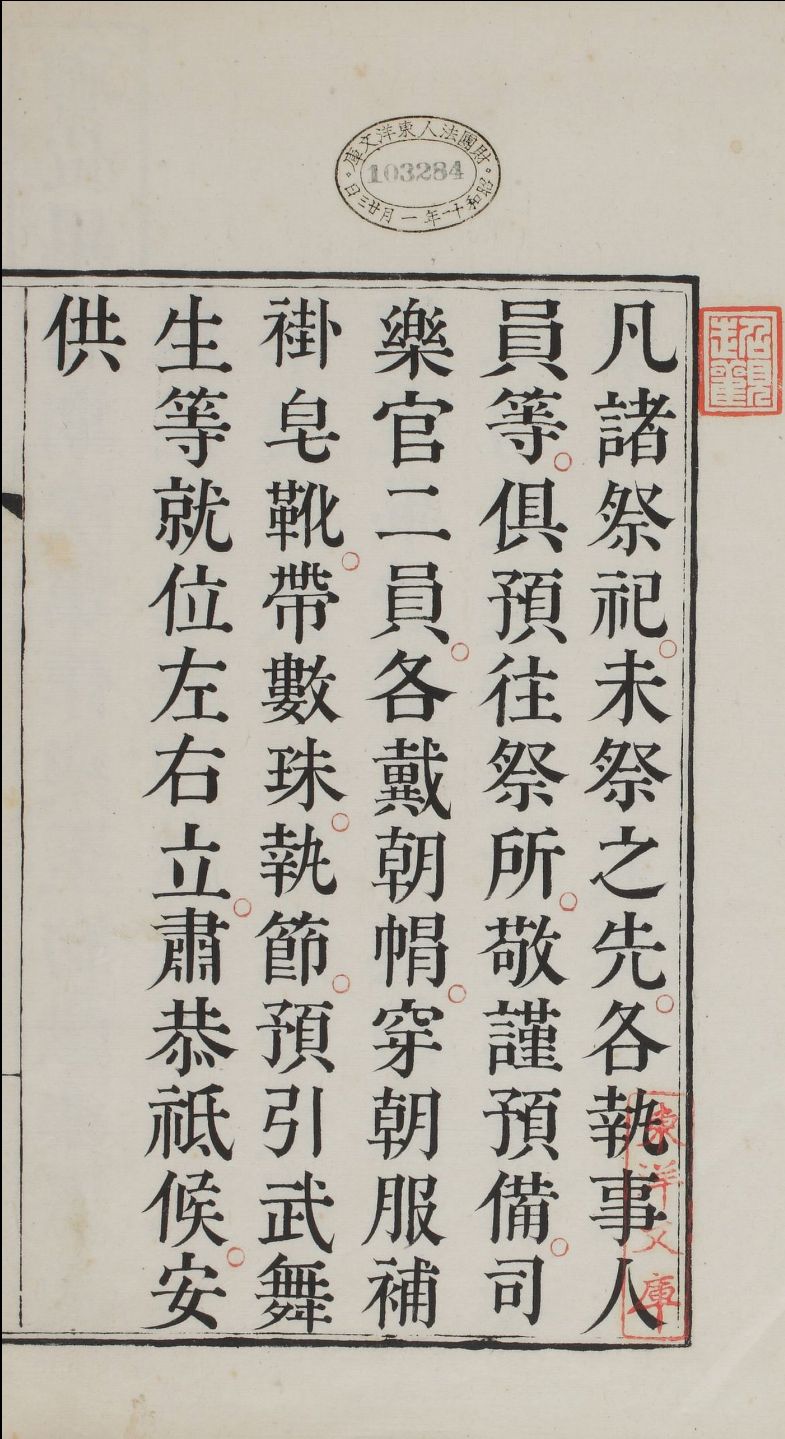 財團法人東洋文庫
103284
昭和十一年一月廿三日
凡諸祭祀未祭之先各執事人
員等俱預往祭所敬謹預備司
樂官二員各戴朝帽穿朝服補
褂皂靴帶數珠執節預引武舞
生等就位左右立肅恭祗候安
供
東洋文庫